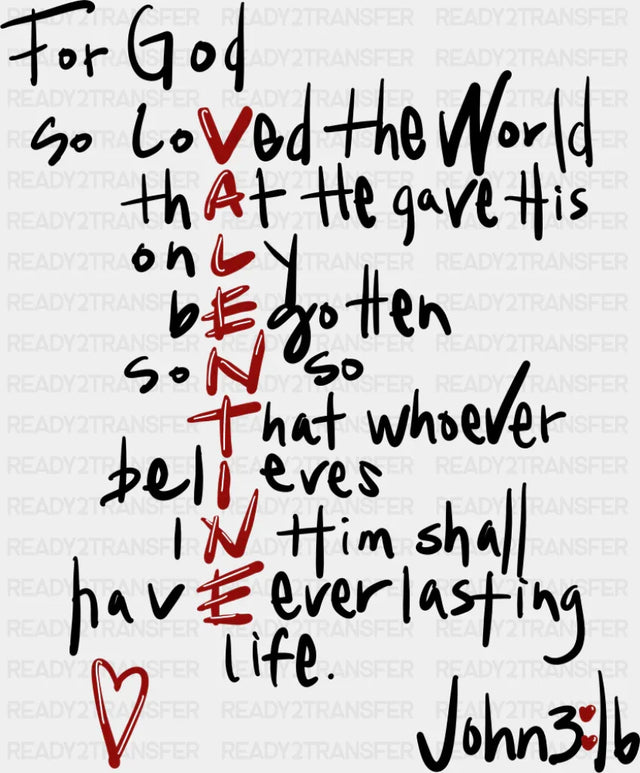 For God
so LoVed the World
thAt He gave His
onLy
bEgotten
soN so
That whoever
belIeves
IN Him shall
havE everlasting
life.
John 3:16
READY2TRANSFER